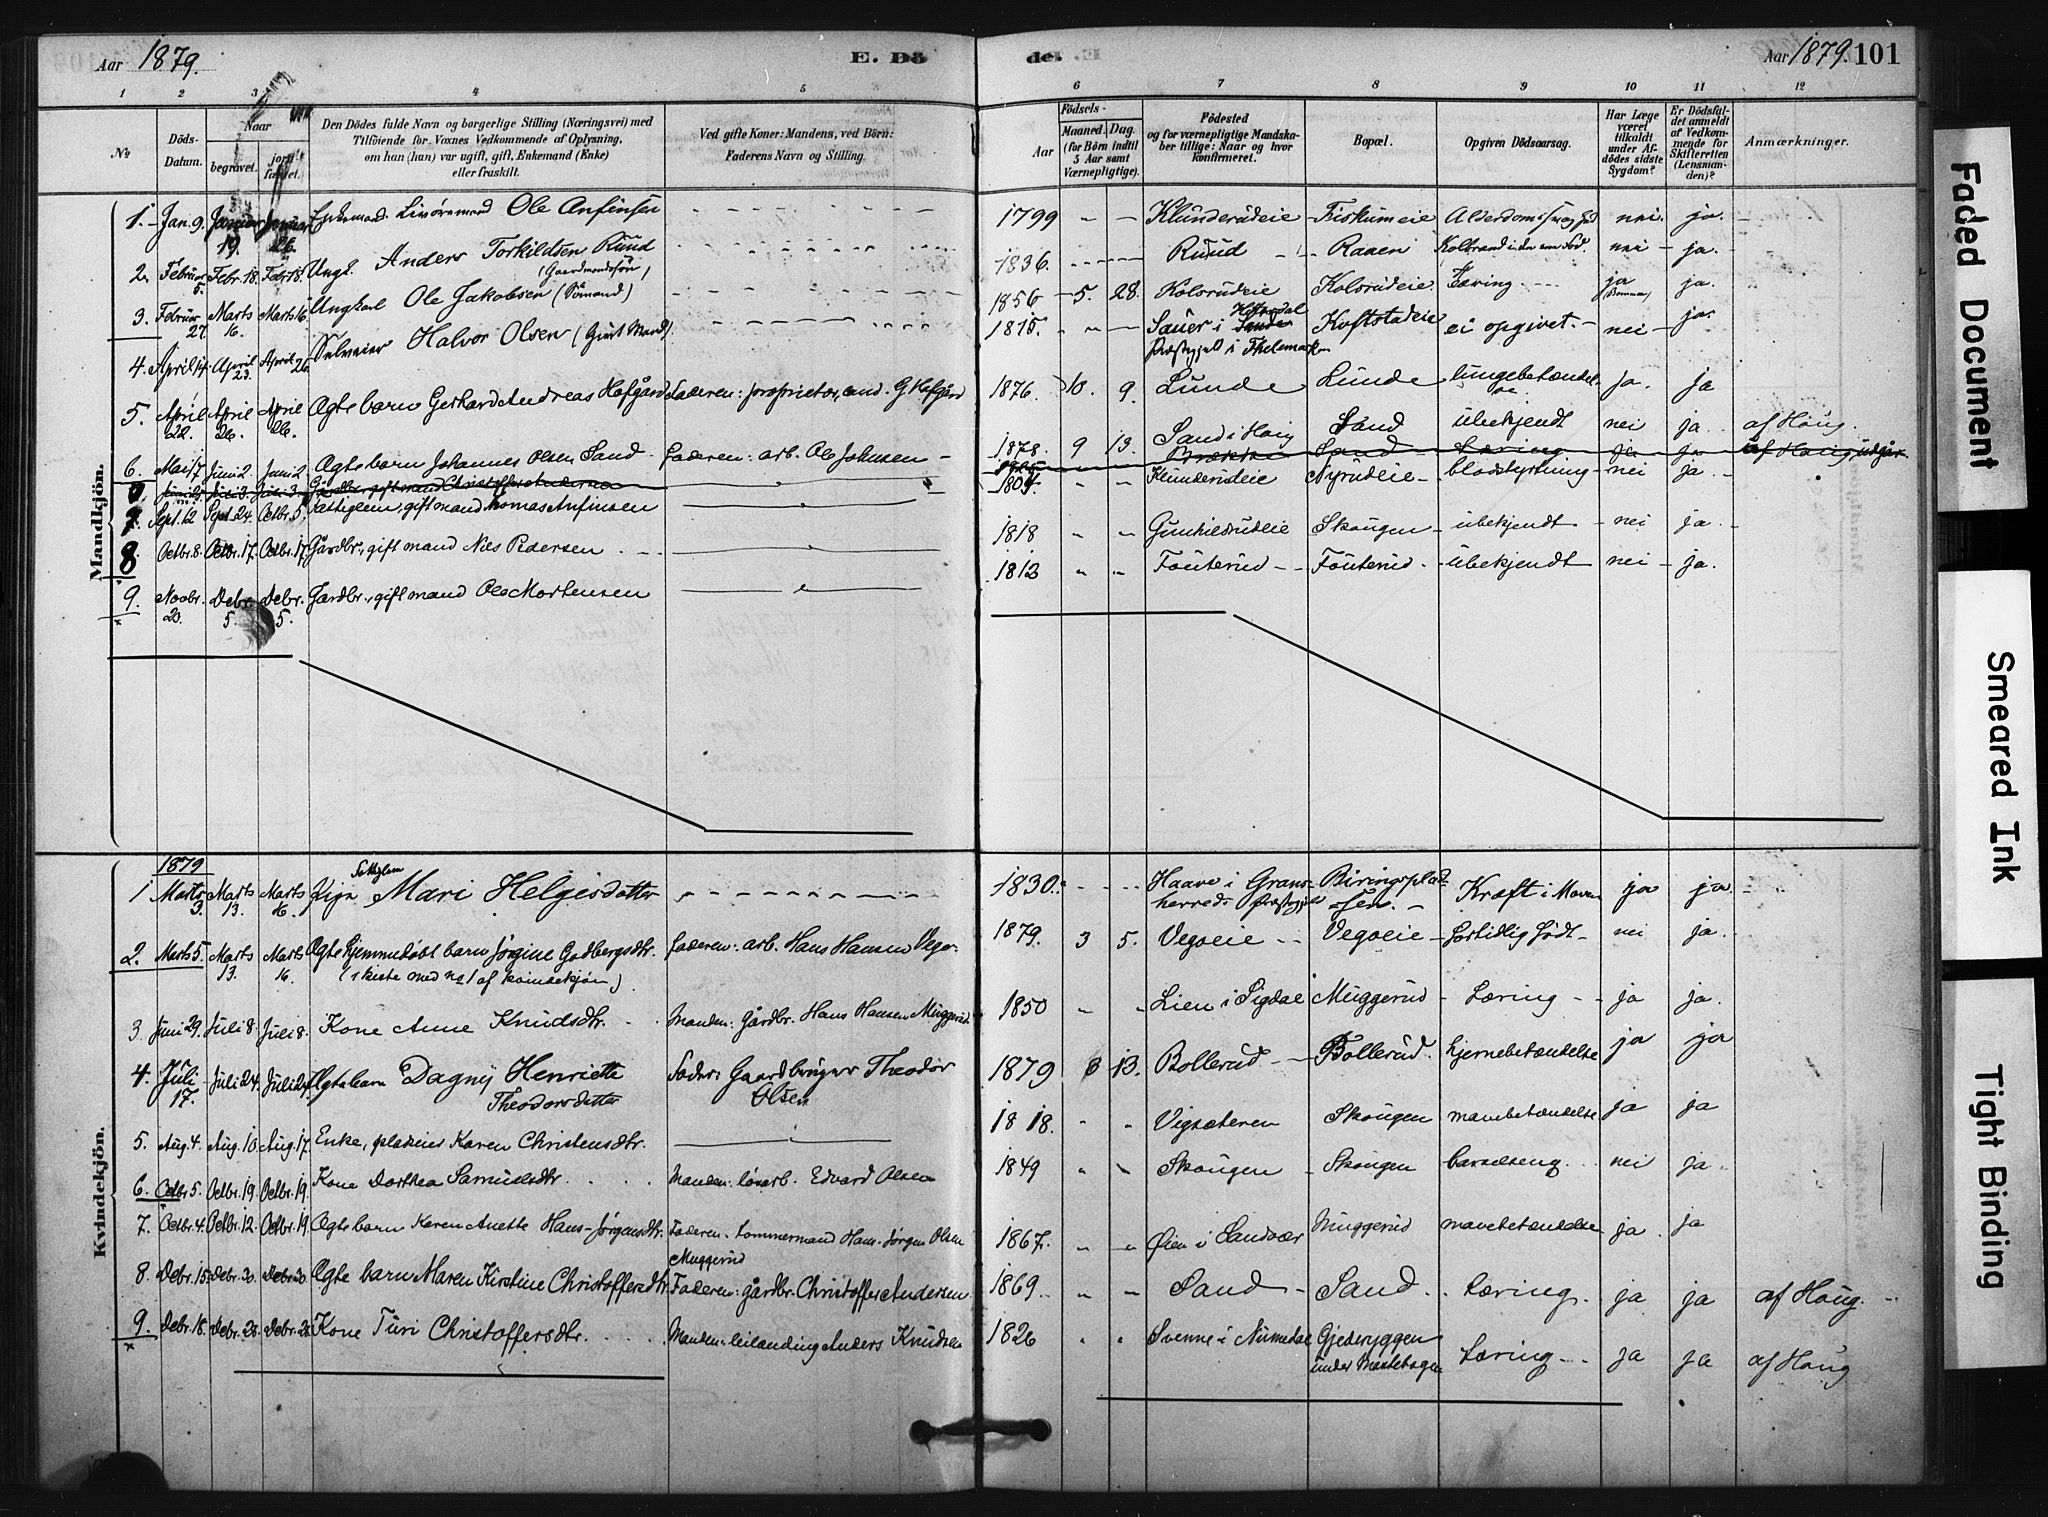 Aar 1879. E. Dö
de. Aar 1879. 101
1 2 3 4 5
6 7 8 9 10 11 12
No
Döds-Datum.
Naar
begravet.
jordfæstet.
Den Dödes fulde Navn og borgerlige Stilling (Næringsvei) med
Tilföiende for Voxnes Vedkommende af Oplysning,
om han (han) var ugift, gift, Enkemand (Enke)
eller fraskilt.
Ved gifte Koner: Mandens, ved Börn:
Faderens Navn og Stilling.
Födsels-
Aar
Maaned. Dag.
(for Börn indtil
5 Aar samt
Værnepligtige).
Födested
og for værnepligtige Mandska-
ber tillige: Naar og hvor
konfirmeret.
Bopæl.
Opgiven Dödsaarsag.
Har Læge
været
tilkaldt
under Af-
dödes sidste
Sygdom?
Er Dödsfal-
det anmeldt
af Vedkom-
mende for
Skifteretten
(Lensman-
den)?
Anmærkninger.
Mandkjön.
1. Jan. 9. Januar 19. Januar 26. Enkemand Livöremand Ole Anfinsen 1799 Klunderudeie Fiskumeie nei. ja.
2. Februar 5. Febr. 18. Febr. 18. Ungk. Anders Torkildsen Ruud (Gaardmandssön) 1836. Ruud Raaen nei ja.
3. Februar 27. Marts 16. Marts 16. Ungkarl Ole Jakobsen (Sömand) 1856 5. 28. Kolsrudeie Kolsrudeie. Tæring ja ja.
4. April 14. April 23. April 26. Selveier Halvor Olsen (Gift Mand) 1815. Sauer i Hitterdal Præstegjeld i Thelemarken Koftstadeie ei opgivet. nei ja.
5. April 22. April 26. April 26. Ægte barn Gerhard Andreas Hofgård Faderen: proprietær, cand. G. Hofgård 1876. 10. 9. Lunde Lunde lungebetændelse ja. ja
6. Mai 17 Juni 2. Juni 2. Ægte barn Johannes Olsen Sand Faderen: arb. Ole Johnsen 1878. 9 13. Sand i Haug Sand ubekjendt nei ja. af Haug.
Juli 3. Juli 3. Gårdbr., gift mand Christoffer Andersen Sand Tæring ja ja af Haug
7. Sept. 12 Sept. 24. Octbr. 5. gift mand Thomas Anfinsen 1804. Klunderudeie Nyrudeie blodstyrtning nei ja
8. Octbr. 8. Octbr. 17. Octbr. 17. Gårdbr., gift mand Nils Pedersen 1818 Gunhildrudeie Skougen ubekjendt nei ja.
9. Novbr. 20. Debr. 5. Debr. 5. Gardbr., gift mand Ole Mortensen 1812 Fouterud Fouterud ubekjendt nei ja.
Kvindekjön.
1879
1 Marts 3. Marts 13. Marts 16. Pige Mari Helgesdatter 1830. Haave i Gransherreds Præstegjeld Biringspladsen. Kræft i Maven ja ja
2. Marts 5. Marts 13. Marts 16. Ægte hjemmedøbt barn Jörgine Godbergsdtr. (i kiste med no 1 af kvindekjön.) Faderen: arb. Hans Hansen Vego. 1879. 3 5. Vegoeie Vegoeie fortidlig födt nei ja.
3 Juni 29. Juli 8. Juli 8. Kone Anne Knudsdtr. Manden: Gårdbr. Hans Hansen Muggerud. 1850 Lien i Sigdal Muggerud Tæring ja ja.
4. Juli 17. Juli 24. Juli 24. Ægte barn Dagny Henriette Theodorsdatter Fader: Gaardbruger Theodor Olsen 1879 13. Bollerud Bollerud. hjernebetændelse ja ja
5. Aug. 4. Aug. 10. Aug. 17. Enke, pladseier Karen Christensdtr. 1818. Vigsæteren Skougen mavebetændelse ja ja
6. Octbr. 5. Octbr. 19. Octbr. 19. Kone Dorthea Samuelsdtr. Manden: lösarb. Edvard Olsen 1849 Skougen Skougen barselseng. nei ja.
7. Octbr. 4. Octbr. 12. Octbr. 19. Ægte barn Karen Anette Hans-Jörgensdtr. Faderen: tømmermand Hans-Jörgen Olsen Muggerud 1867. Öien i Sandsvær Muggerud mavebetændelse ja. ja
8. Debr. 15. Debr. 20. Debr. 20. Ægte barn Maren Kirstine Christoffersdtr. Faderen: gårdbr. Christoffer Andersen. 1869. Sand Sand. Tæring. ja ja af Haug.
9. Debr. 18. Debr. 28. Debr. 28. Kone Turi Christoffersdtr. Manden: leilænding Anders Knudsen 1826 Svenne i Numedal Gjederyggen under Mastebogen Tæring ja ja af Haug
Faded Document
Smeared Ink
Tight Binding